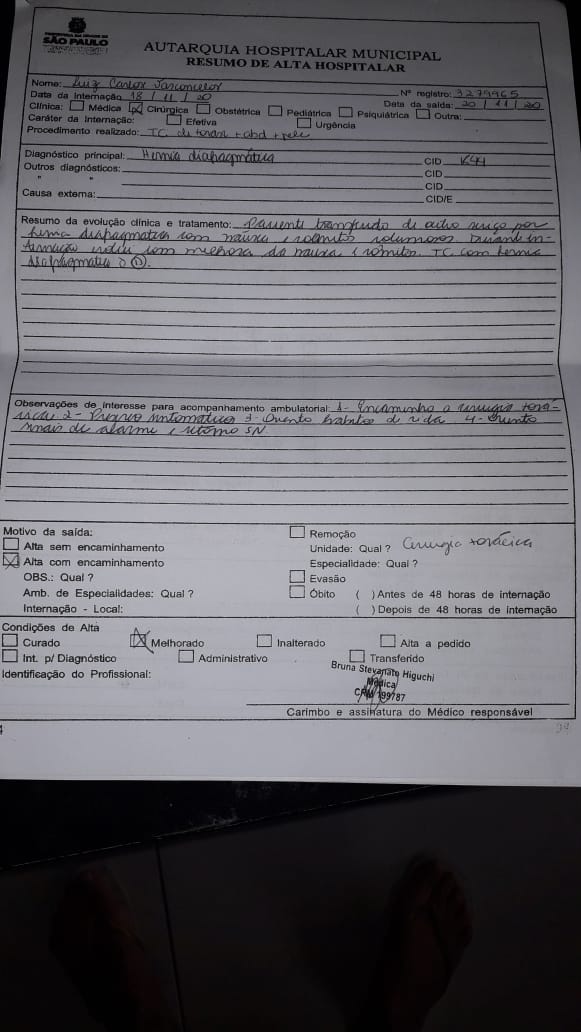 PREFEITURA DA CIDADE DE
SÃO PAULO
AUTARQUIA HOSPITALAR MUNICIPAL
RESUMO DE ALTA HOSPITALAR
Nome: Luiz Carlos Vasconcelos
Nº registro: 3279965
Data da internação 18 / 11 / 20 Data da saída: 20 / 11 / 20
Clínica: Médica Cirúrgica Obstétrica Pediátrica Psiquiátrica Outra:
Caráter da Internação: Efetiva Urgência
Procedimento realizado: TC de torax + abd + pelv
Diagnóstico principal: Hernia diafragmática CID K44
Outros diagnósticos: CID
" " CID
Causa externa: CID/E
Resumo da evolução clínica e tratamento: Paciente transferido de outro serviço por
hernia diafragmatica com nausea e vomitos volumosos. Durante in-
ternação evolui com melhora da nausea e vomitos. TC com hernia
diafragmatica a D.
Observações de interesse para acompanhamento ambulatorial: 1- Encaminho a cirurgia torá-
cica 2- sintomaticos 3- Oriento habitos de vida 4- Oriento
sinais de alarme e retorno SN
Motivo da saída: Remoção
Alta sem encaminhamento Unidade: Qual ? Cirurgia torácica
Alta com encaminhamento Especialidade: Qual ?
OBS.: Qual ? Evasão
Amb. de Especialidades: Qual ? Óbito ( ) Antes de 48 horas de internação
Internação - Local: ( ) Depois de 48 horas de internação
Condições de Alta
Curado Melhorado Inalterado Alta a pedido
Int. p/ Diagnóstico Administrativo Transferido
Identificação do Profissional: Bruna Stevanato Higuchi
Médica
CRM 199787
Carimbo e assinatura do Médico responsável